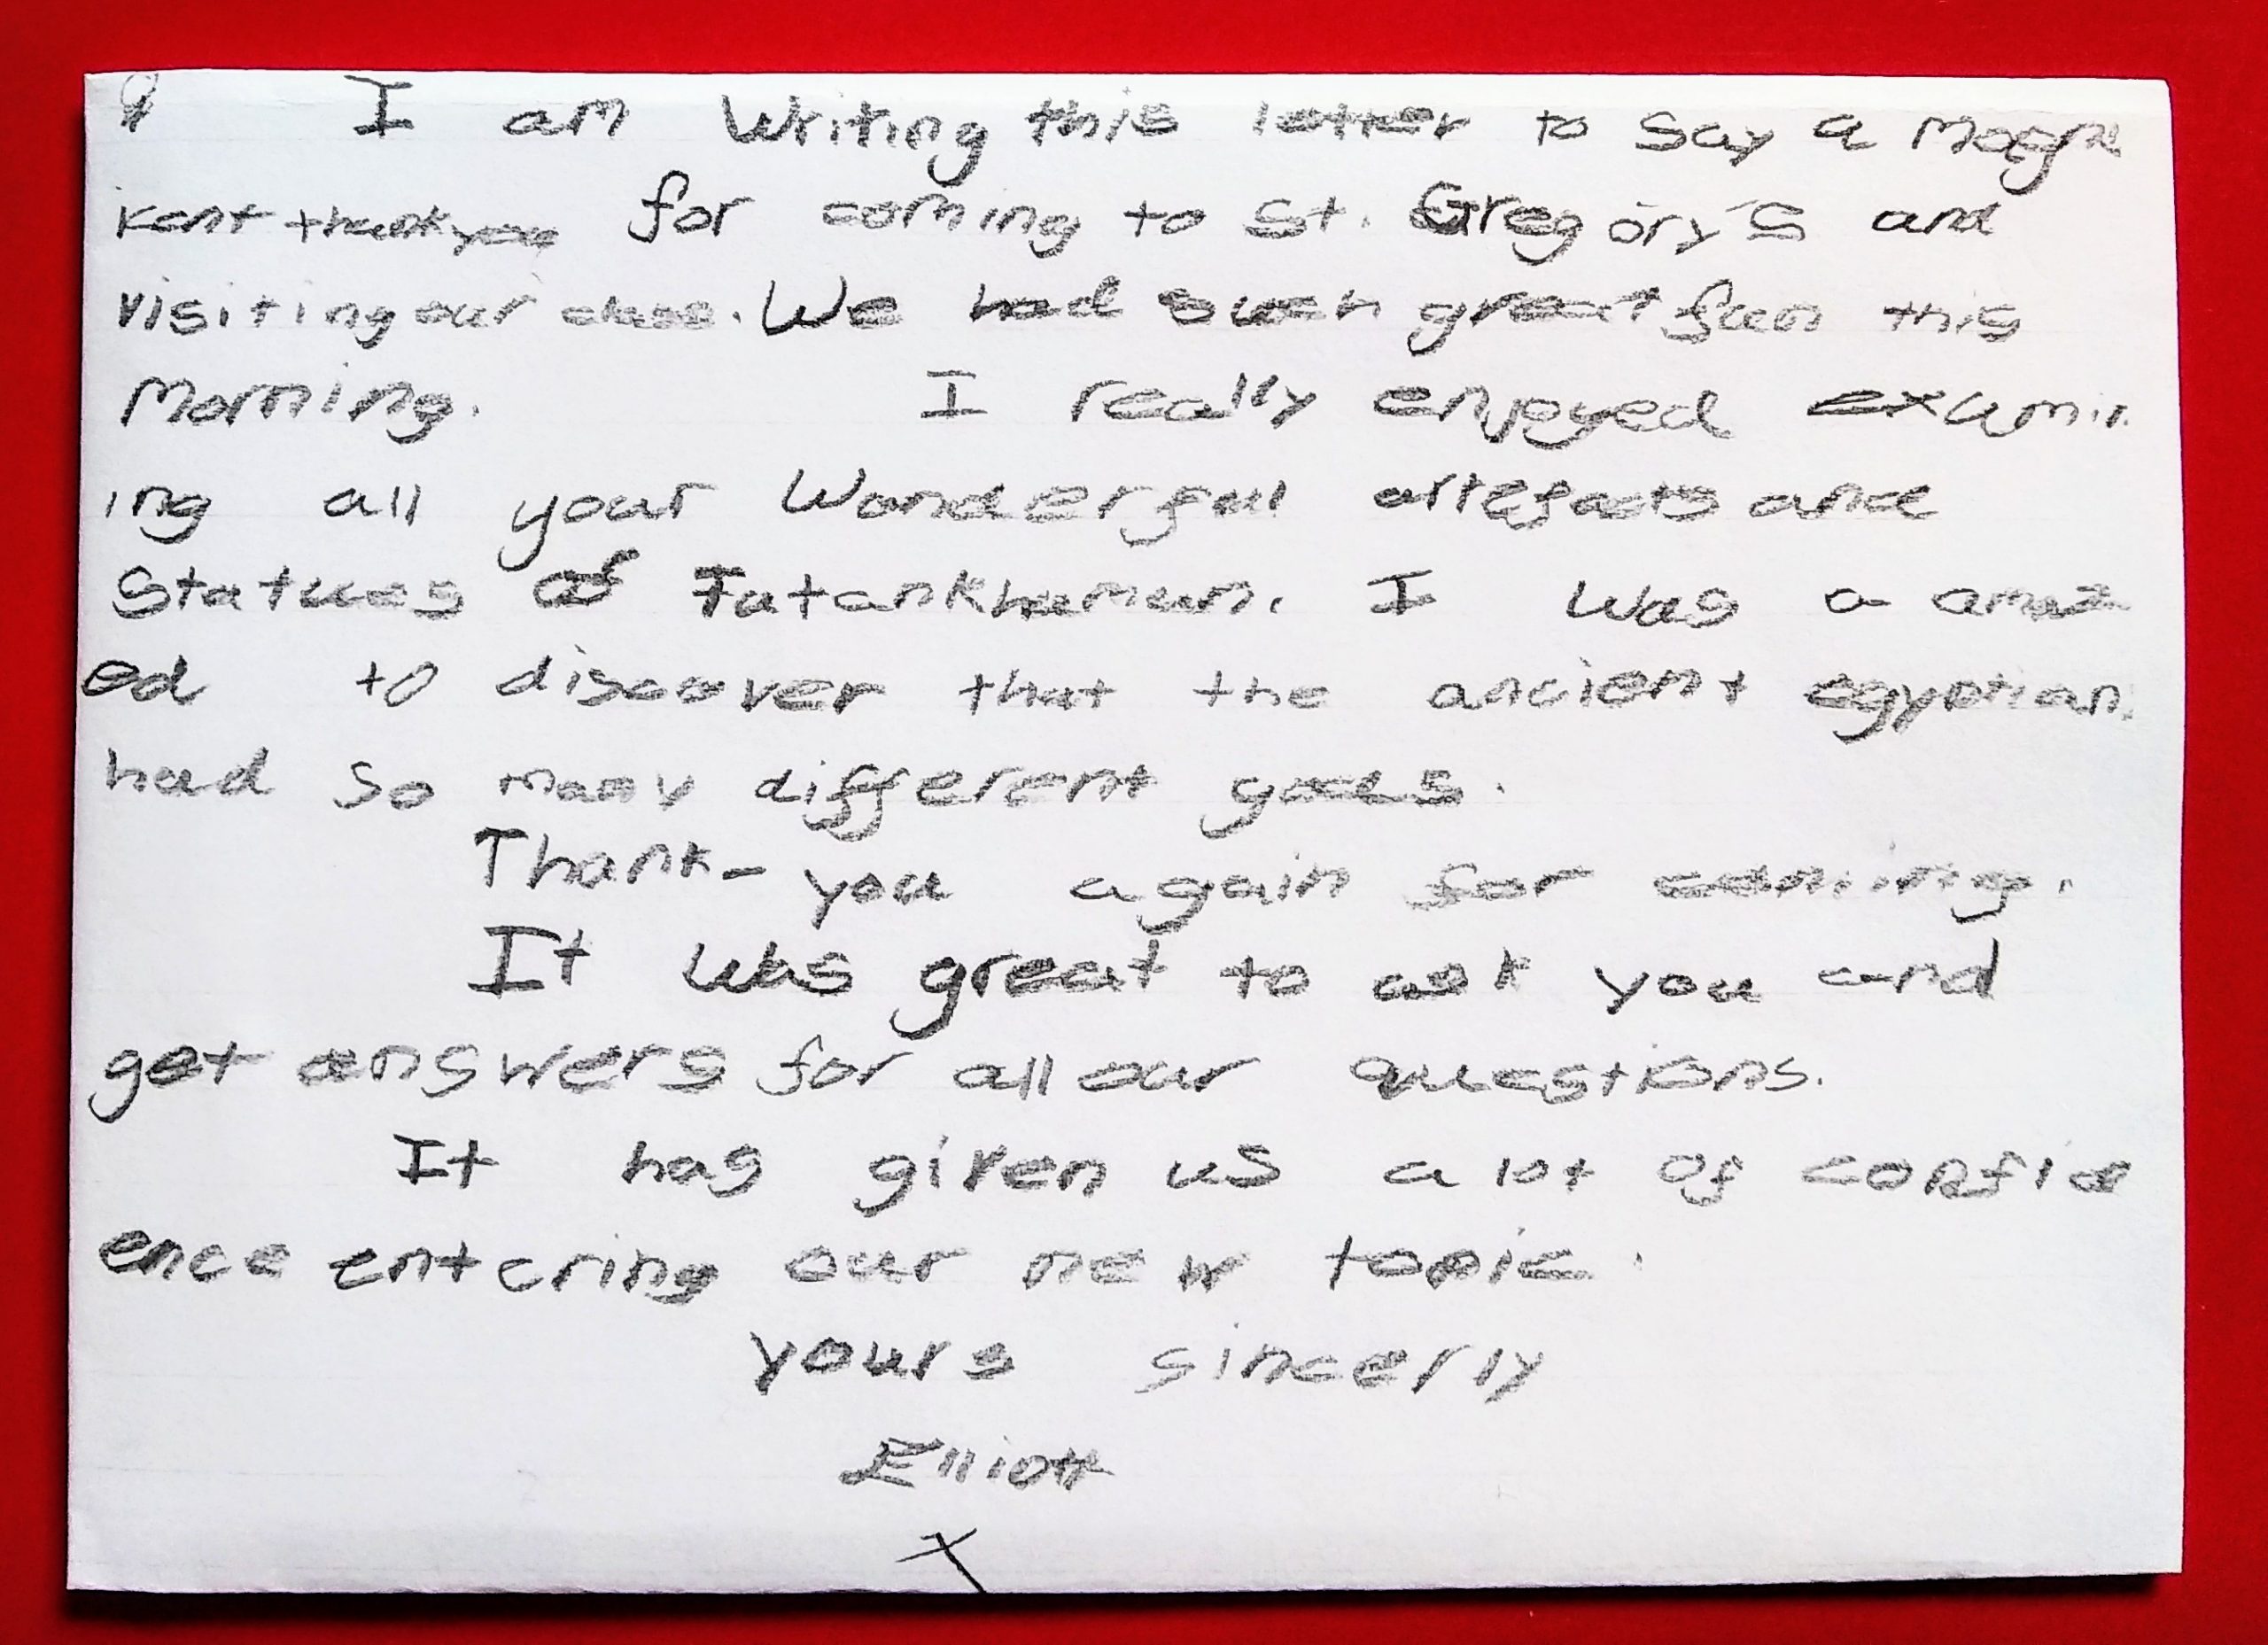 I am writing this letter to say a Magni
kent thankyou for coming to St. Gregory's and
visiting our class. We had such great fun this
Morning. I really enjoyed examin
ing all your Wonderful artefacts and
Statues of Tutankhamun. I was a amaz
ed to discover that the ancient egyptian
had so many different gods.
Thank-you again for coming.
It was great to ask you and
get answers for all our questions.
It has given us a lot of confid
ence entering our new topic.
yours sincerly
Elliott
X